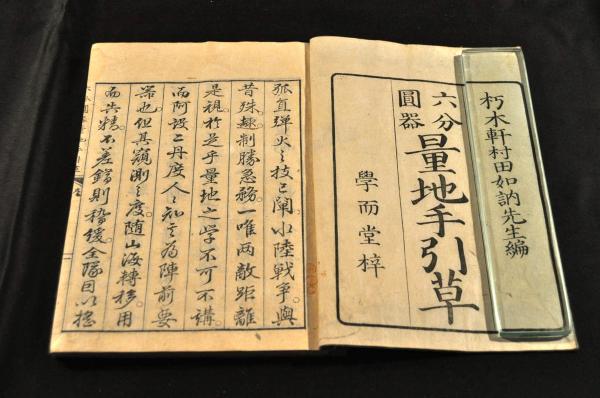 朽木軒村田如訥先生編
六分
圓器
量地手引草
學而堂梓
直弾火之技已闡水陸戦争與
昔殊趣制勝急務一唯両敵距離
是視於是乎量地之学不可不講
而阿設之丹度人之知之為陣前要
器也但其窺測之度随山海轉移用
而精不差則稽緩全隊因以撓